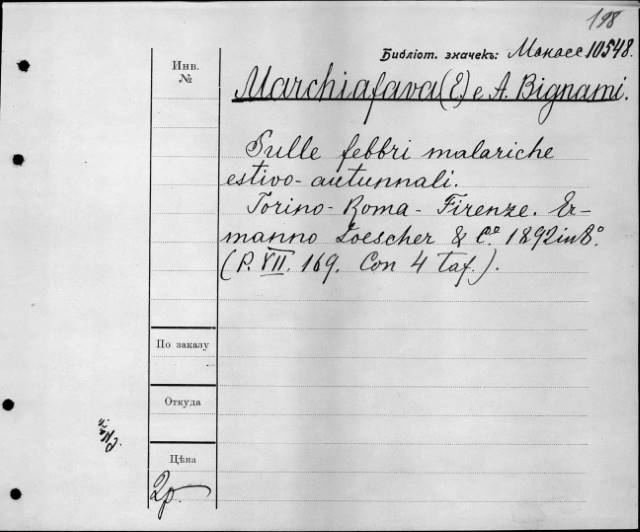 198
Библіот. значекъ: Манасс 10548.
Инв.
№
Marchiafava (E) e A. Bignami.
Sulle febbri malariche
estivo-autunnali.
Torino-Roma-Firenze. Er-
manno Loescher & C.º 1892 in 8.º
(P. VII. 169. Con 4 taf.).
По заказу
Откуда
Цѣна
2р.